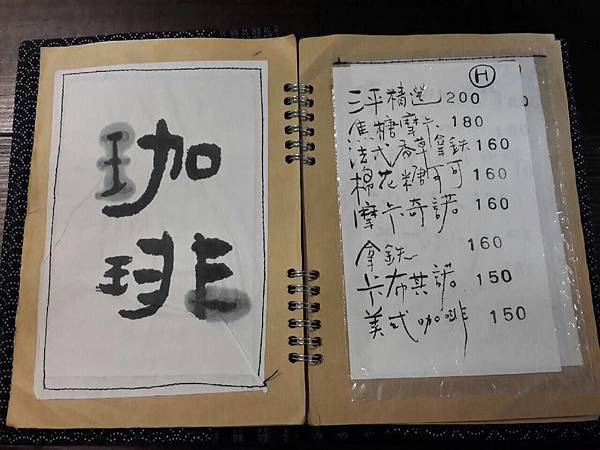 珈
琲
H
三平精選 200
焦糖摩卡 180
法式香草拿鉄 160
棉花糖可可 160
摩卡奇諾 160
拿鉄 160
卡布其諾 150
美式咖啡 150